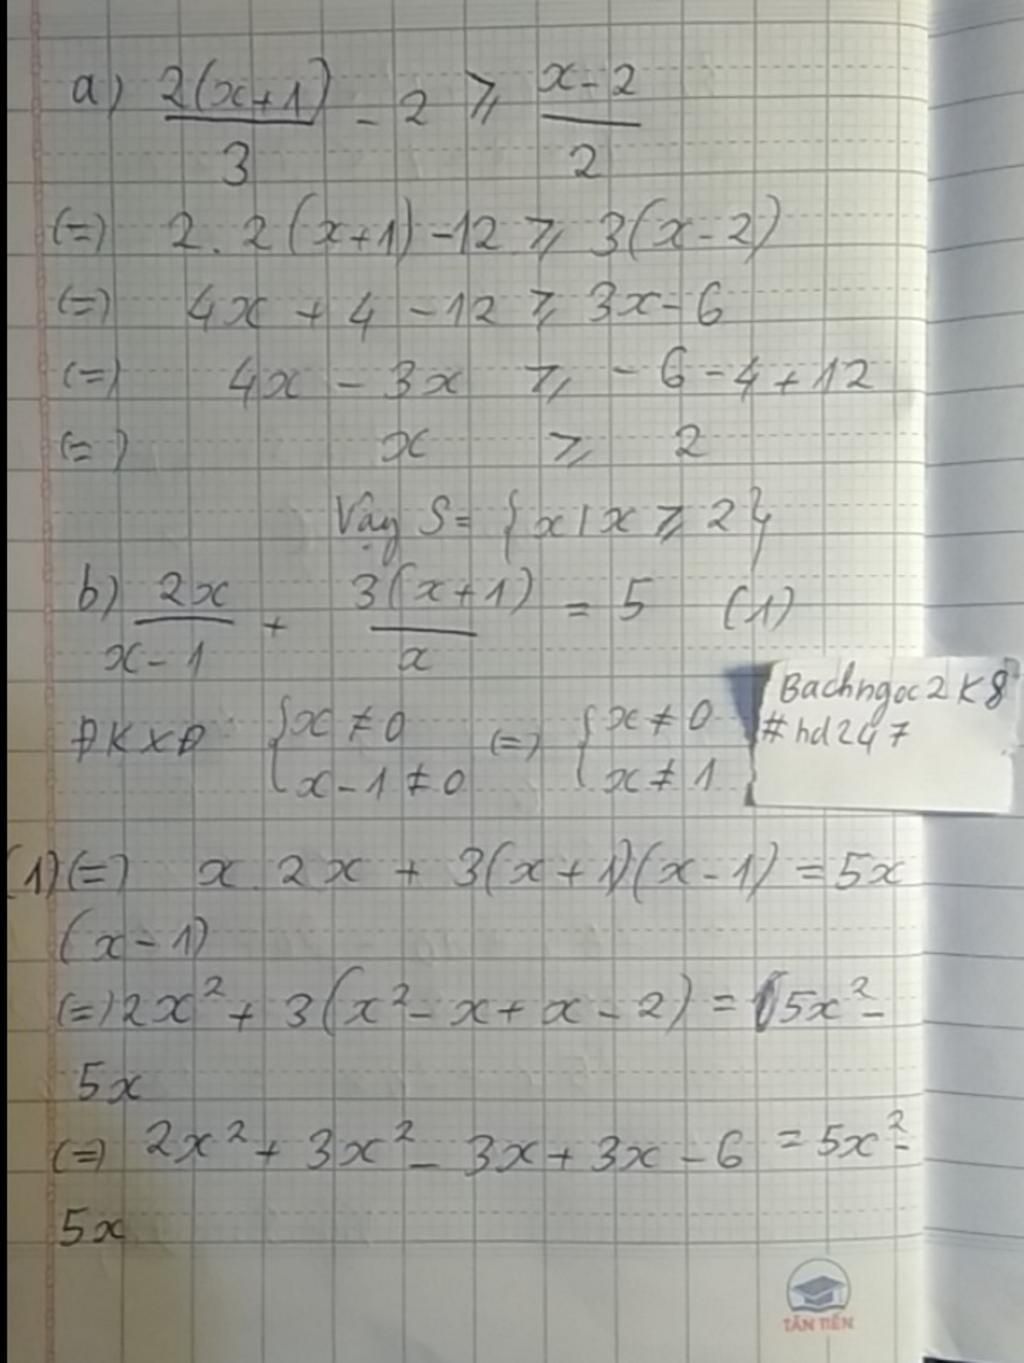 a) 2(x+1)/3 - 2 ⩾ x-2/2
(=) 2. 2(x+1) -12 ⩾ 3(x-2)
(=) 4x + 4 -12 ⩾ 3x-6
(=) 4x - 3x ⩾ -6-4+12
(=) x ⩾ 2
Vậy S= {x|x ⩾ 2}
b) 2x/x-1 + 3(x+1)/x = 5 (1)
ĐKXĐ {x ≠ 0 (=) {x ≠ 0
x-1 ≠ 0 x ≠ 1
Bachngoc2K8
#hd247
(1)(=) x.2x + 3(x+1)(x-1) = 5x
(x-1)
(=)2x² + 3(x²-x+x-2) = 5x²-
5x
(=) 2x²+3x²-3x+3x-6 =5x²-
5x
TÂN TIẾN